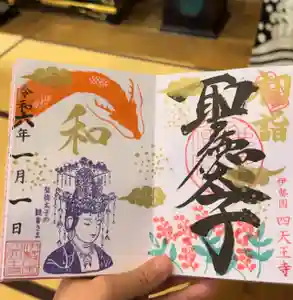 初詣
聖徳太子
伊勢國 四天王寺
和
聖徳太子の
観音さま
令和六年一月一日